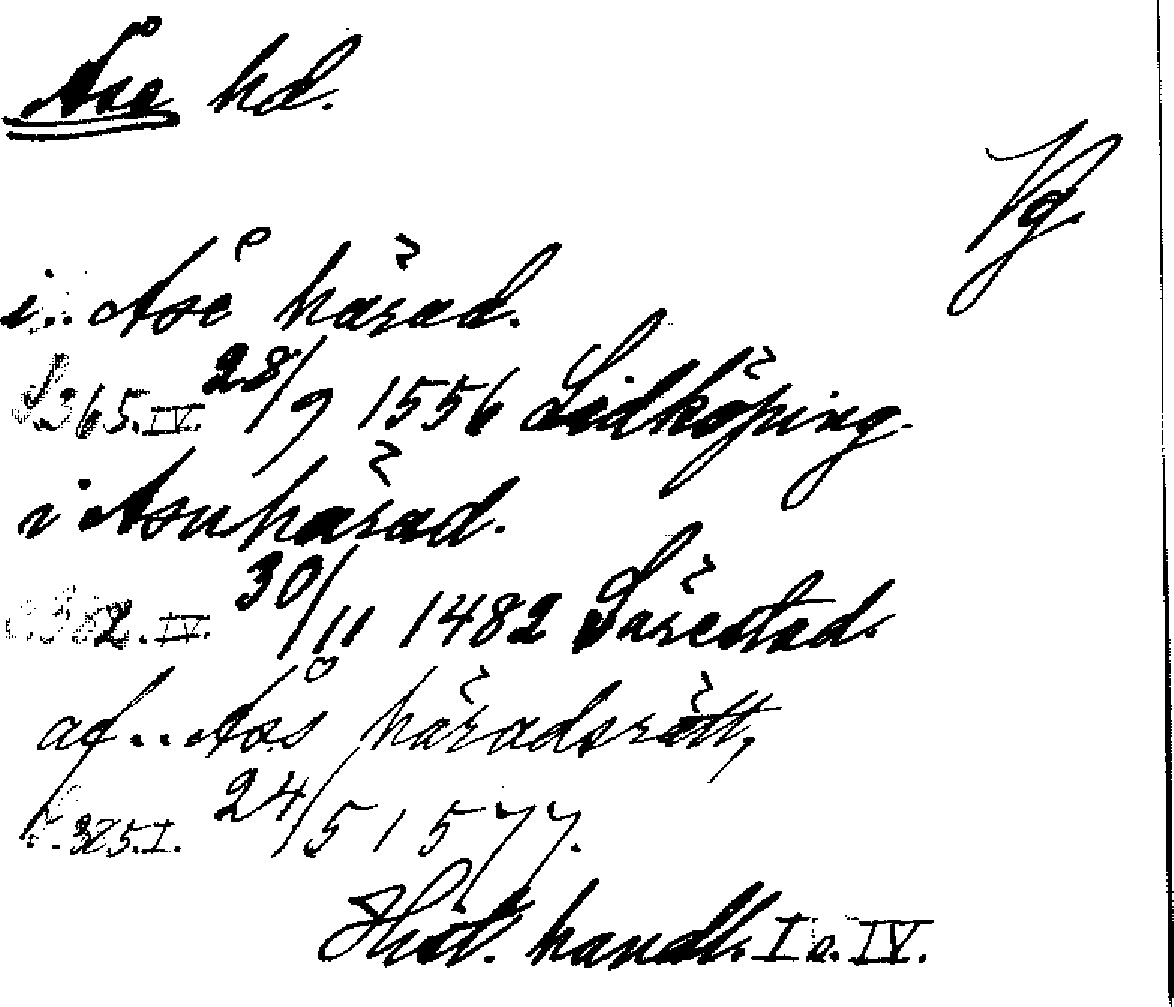 Åse hd.
Vg.
i.. Åse härad.
S. 365. IV. 28/9 1556 Lidköping.
i Asuhärad.
S. 382. IV. 30/11 1482 Särestad.
af... Åss häradsrätt,
S. 325. I. 24/5 1577.
Hist. handl. I o. IV.